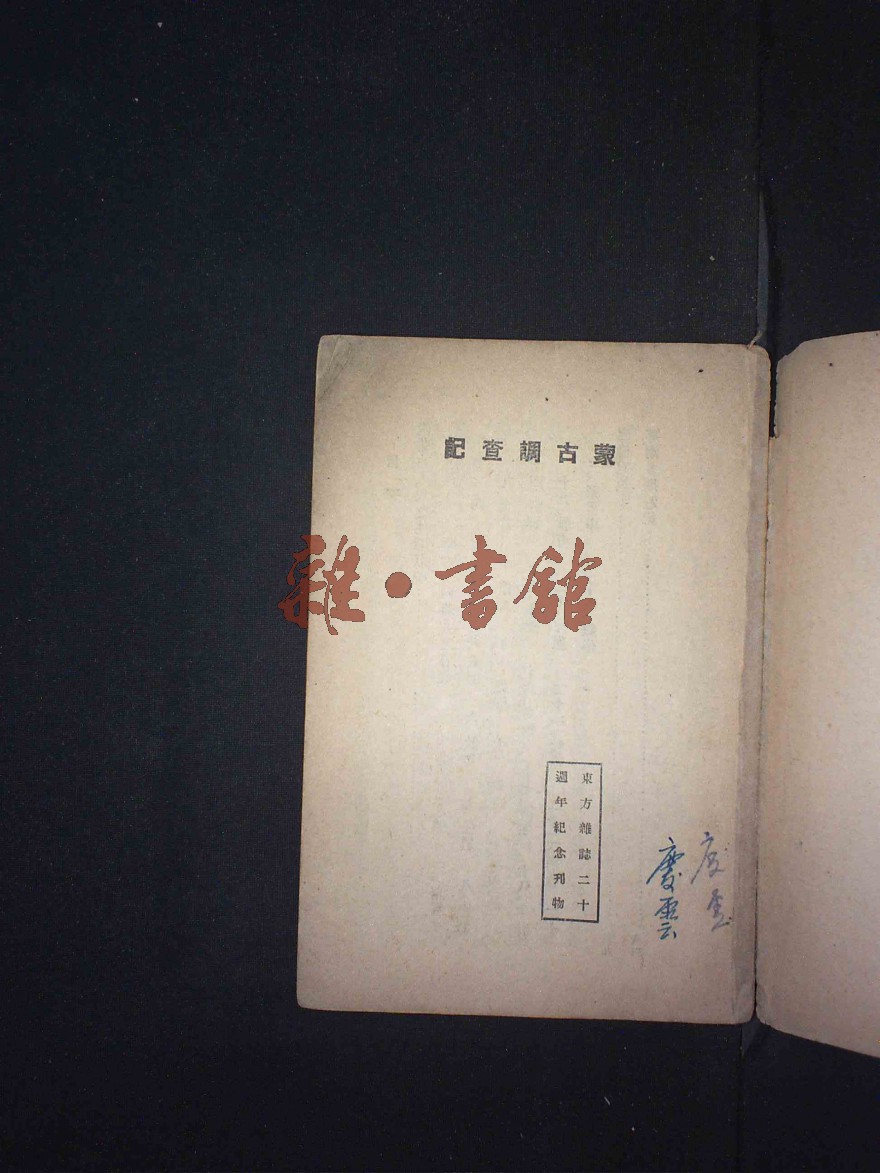 蒙古調查記
雜·書館
東方雜誌二十
週年紀念刊物
慶雲